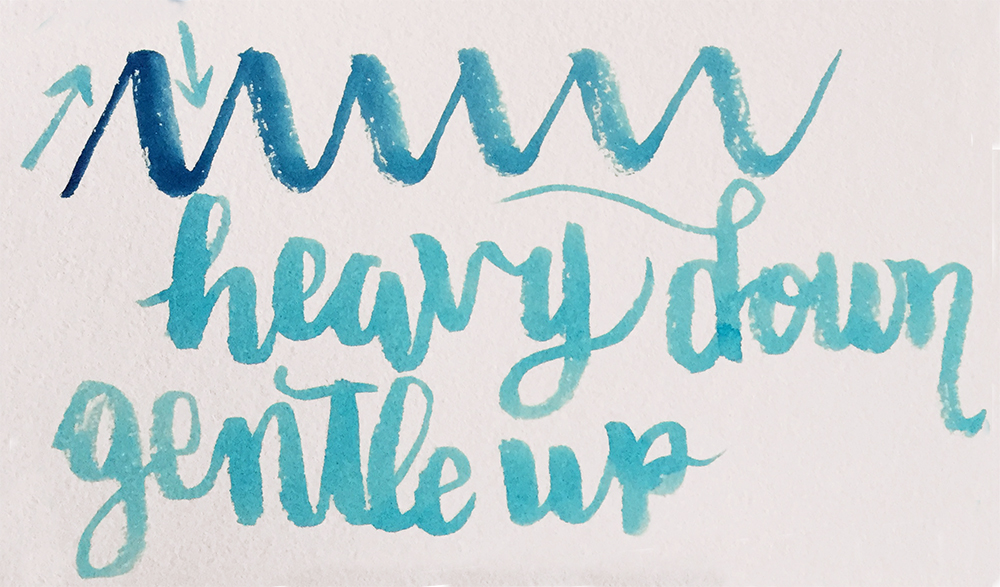 heavy down
gentle up